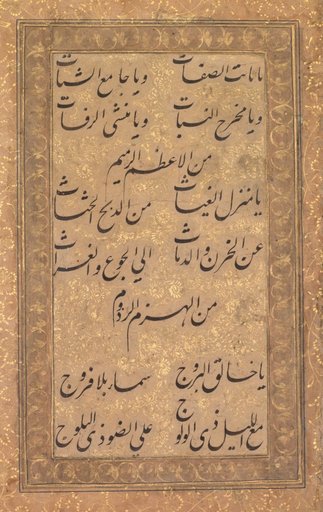 يا ثابت الصفات ويا جامع الشتات
ويا مخرج النبات ويا منشى الرفات
من الاعظم الرميم
يا منزل الغياث من الدلح الحثاث
عن الحزن والدماث الي الجوع والغراث
من الهزم الرزوم
يا خالق البروج سما بلا فروج
مع الليل ذي الولوج علي الضو ذي البلوج